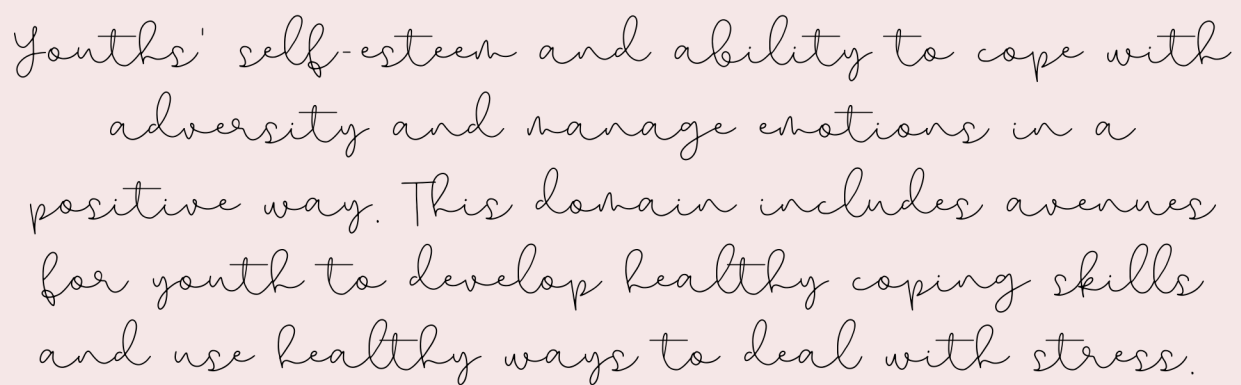 Youths' self-esteem and ability to cope with
adversity and manage emotions in a
positive way. This domain includes avenues
for youth to develop healthy coping skills
and use healthy ways to deal with stress.